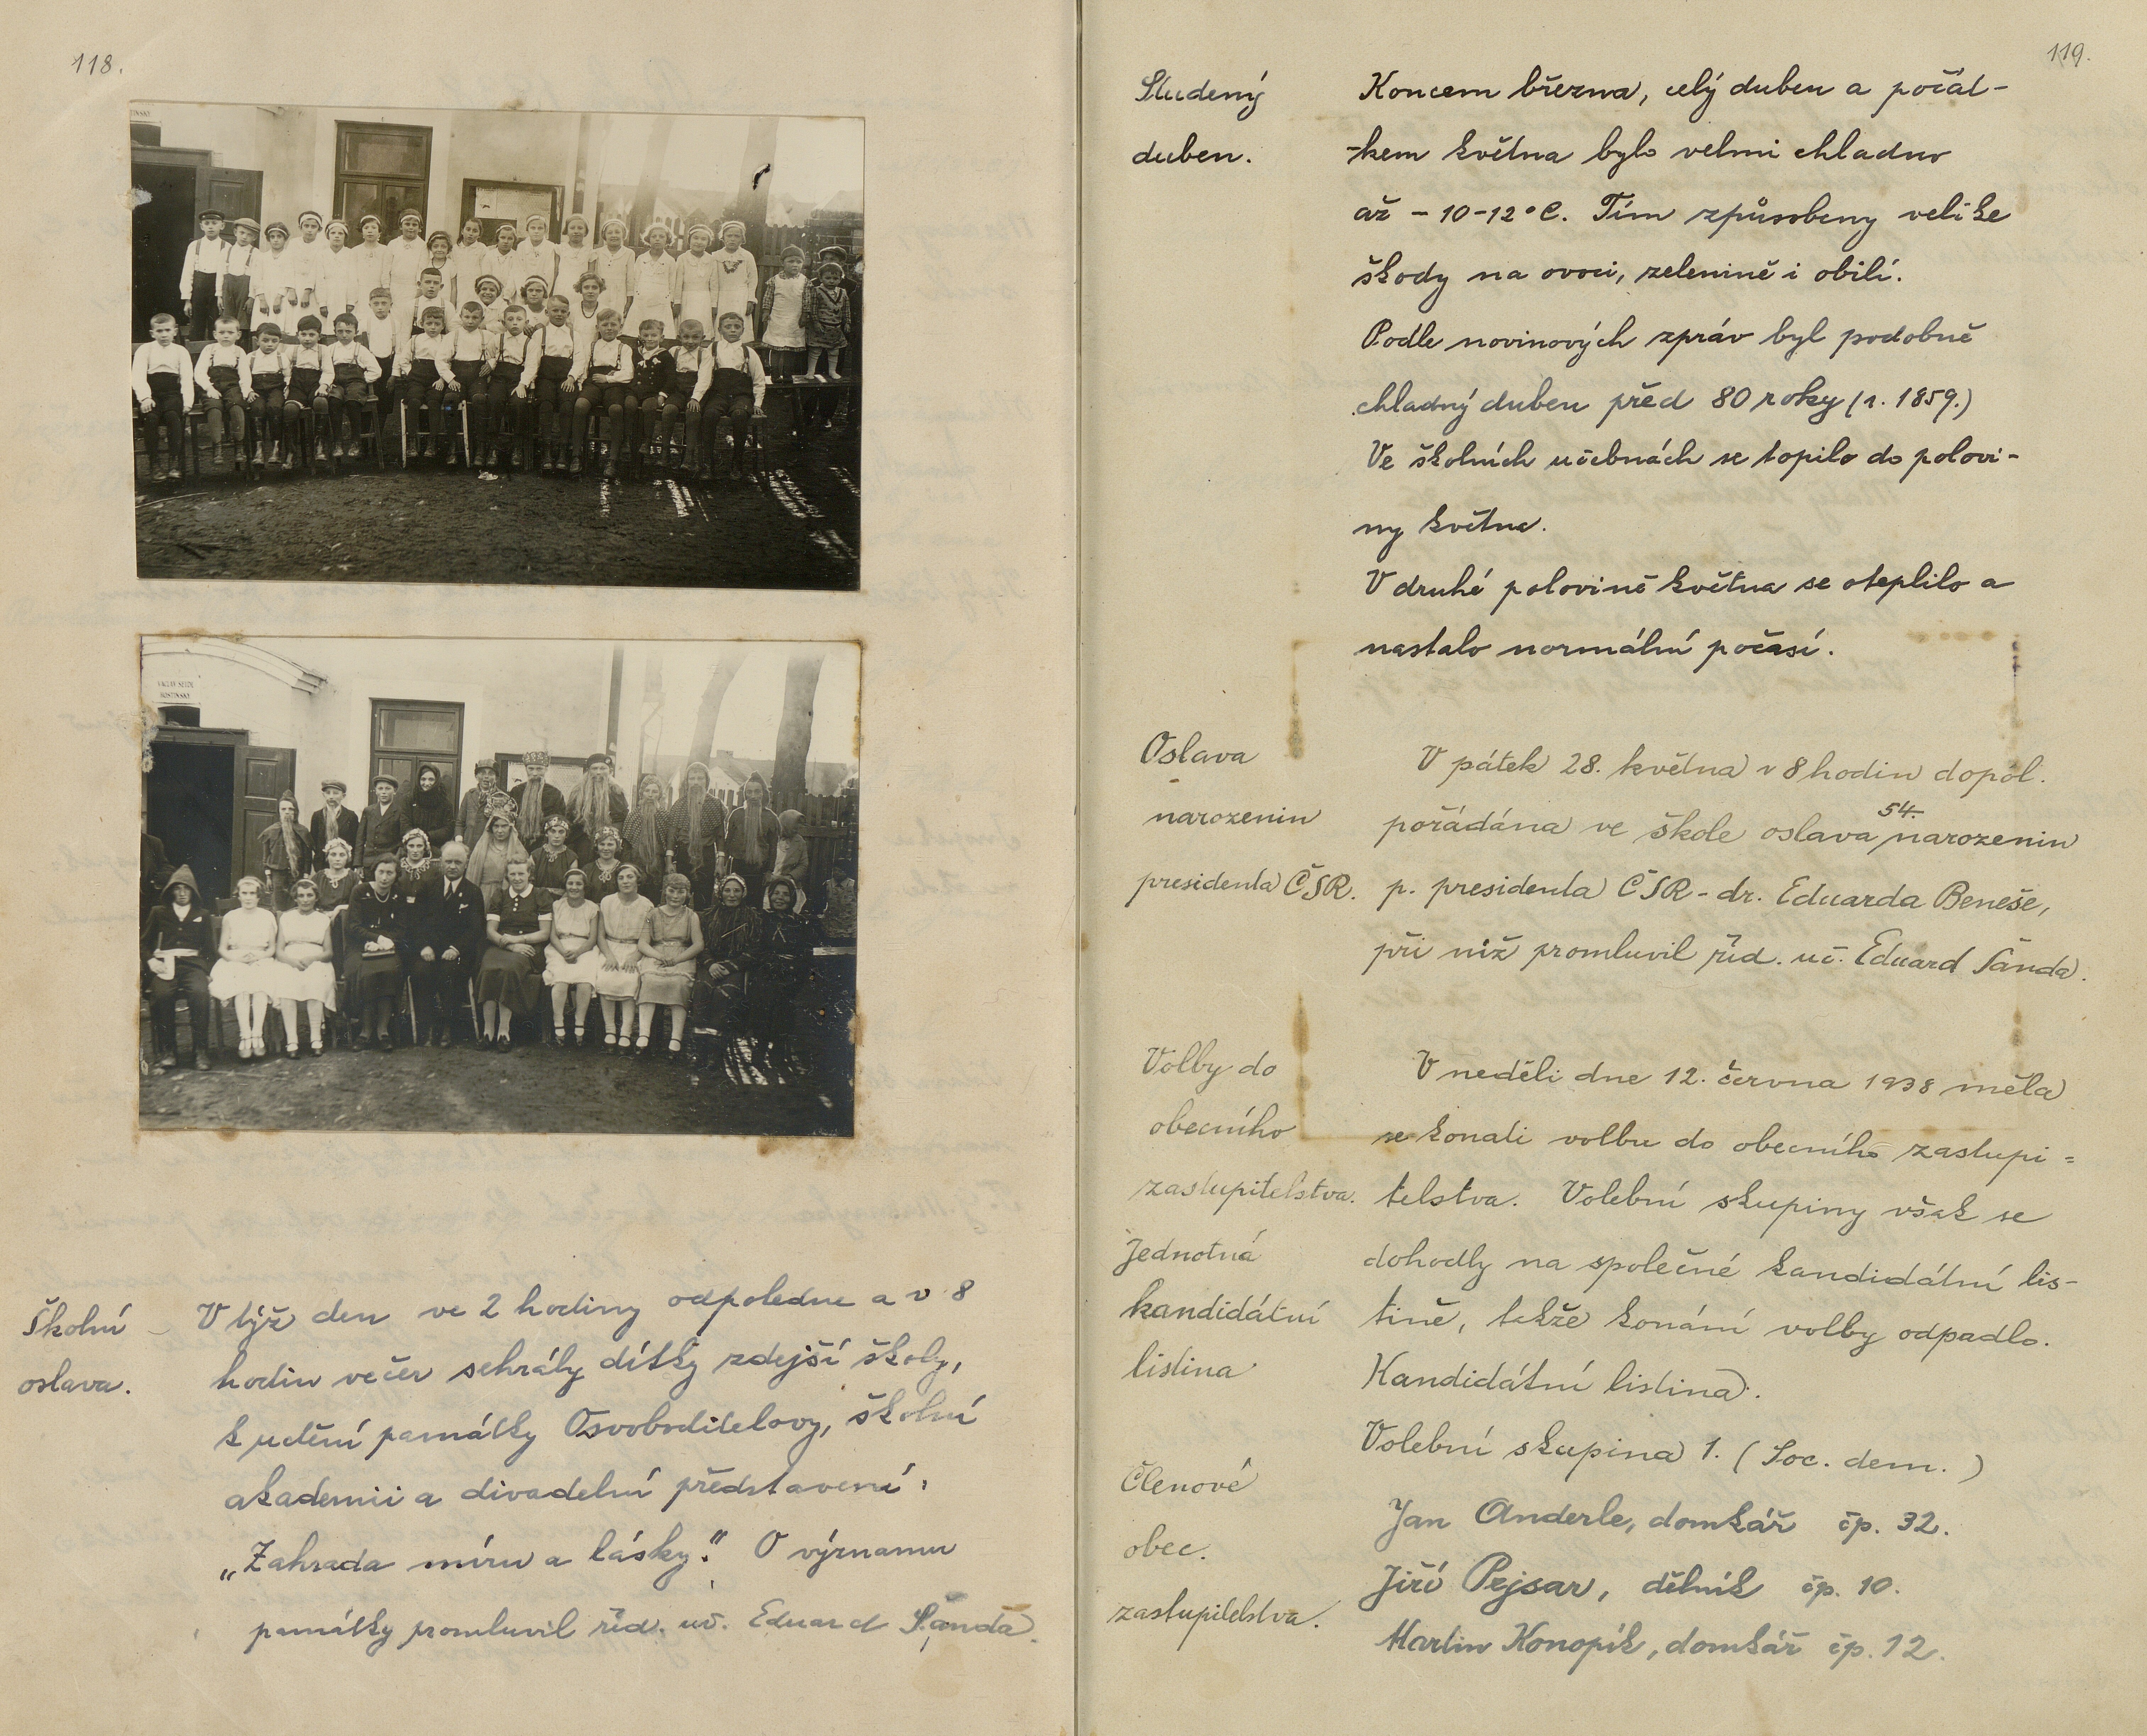 118.
VÁCLAV
HOSTINSKÝ
Školní
oslava.
V týž den ve 2 hodiny odpoledne a v 8
hodin večer sehrály dítky zdejší školy,
k uctění památky Osvoboditelovy, školní
akademii a divadelní představení:
„Zahrada míru a lásky." O významu
památky promluvil říd. uč. Eduard Šanda.
119.
Studený
duben.
Koncem března, celý duben a počát-
-kem května bylo velmi chladno
až - 10-12°C. Tím způsobeny veliké
škody na ovoci, zelenině i obilí.
Podle novinových zpráv byl podobně
chladný duben před 80 roky (r. 1859.)
Ve školních učebnách se topilo do polovi-
ny května.
V druhé polovině května se oteplilo a
nastalo normální počasí.
Oslava
narozenin
presidenta ČSR.
V pátek 28. května v 8 hodin dopol.
pořádána ve škole oslava 54. narozenin
p. presidenta ČSR - dr. Eduarda Beneše,
při níž promluvil říd. uč. Eduard Šanda.
Volby do
obecního
zastupitelstva.
Jednotná
kandidátní
listina
V neděli dne 12. června 1938 měla
se konati volbu do obecního zastupi=
telstva. Volební skupiny však se
dohodly na společné kandidátní lis-
tině, takže konání volby odpadlo.
Kandidátní listina:
Členové
obec.
zastupitelstva.
Volební skupina 1. (Soc. dem.)
Jan Anderle, domkář čp. 32.
Jiří Pejsar, dělník čp. 10.
Martin Konopík, domkář čp. 12.